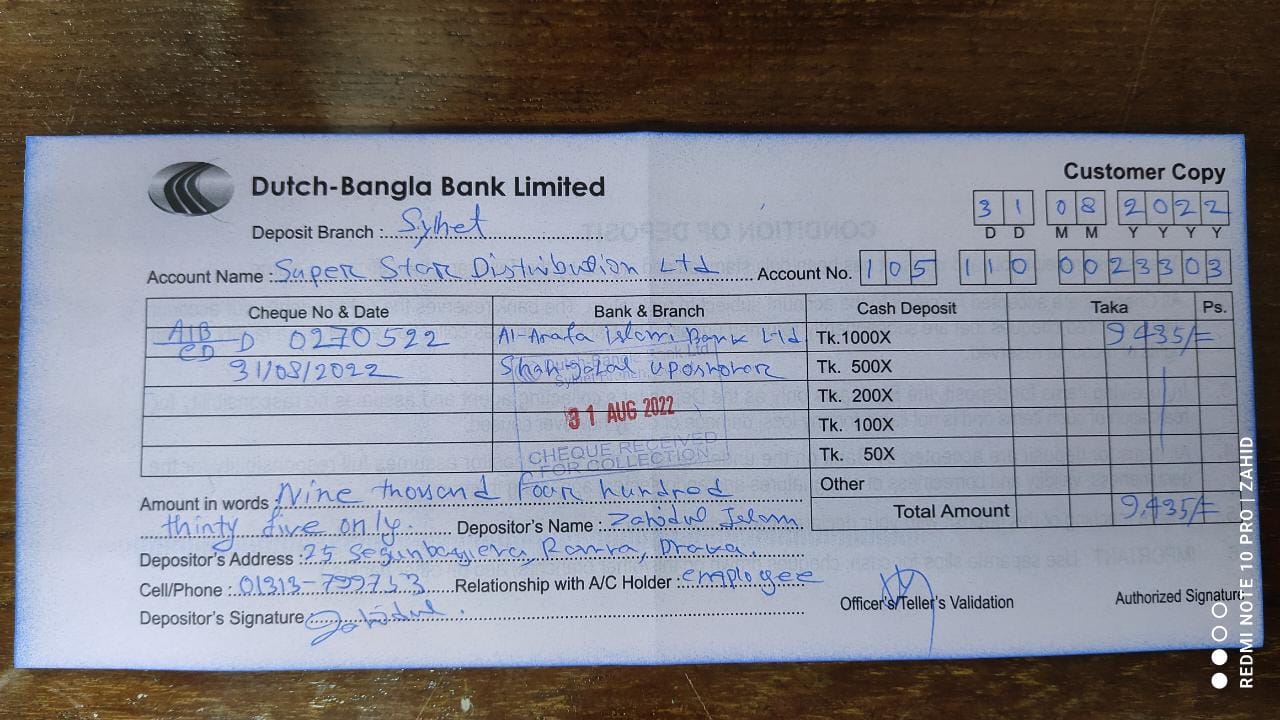 Dutch-Bangla Bank Limited
Customer Copy
31 08 2022
D D M M Y Y Y Y
Deposit Branch : Sylhet
Account Name : Super Star Distribution Ltd Account No. 105 110 0023303
Cheque No & Date Bank & Branch Cash Deposit Taka Ps.
AIB CD D 0270522 Al-Arafa islami Bank Ltd Tk.1000X 9,435/=
31/08/2022 Shahjalal uposhohor Tk. 500X
Tk. 200X
31 AUG 2022
Tk. 100X
CHEQUE RECEIVED
FOR COLLECTION
Tk. 50X
Other
Total Amount 9,435/=
Amount in words : Nine thousand four hundred
thirty five only. Depositor's Name : Zahidul Islam
Depositor's Address : 25 Segunbagera, Ramna, Dhaka.
Cell/Phone : 01313-799753 Relationship with A/C Holder : employee
Depositor's Signature Zahidul
Officer's/Teller's Validation Authorized Signature
REDMI NOTE 10 PRO | ZAHID